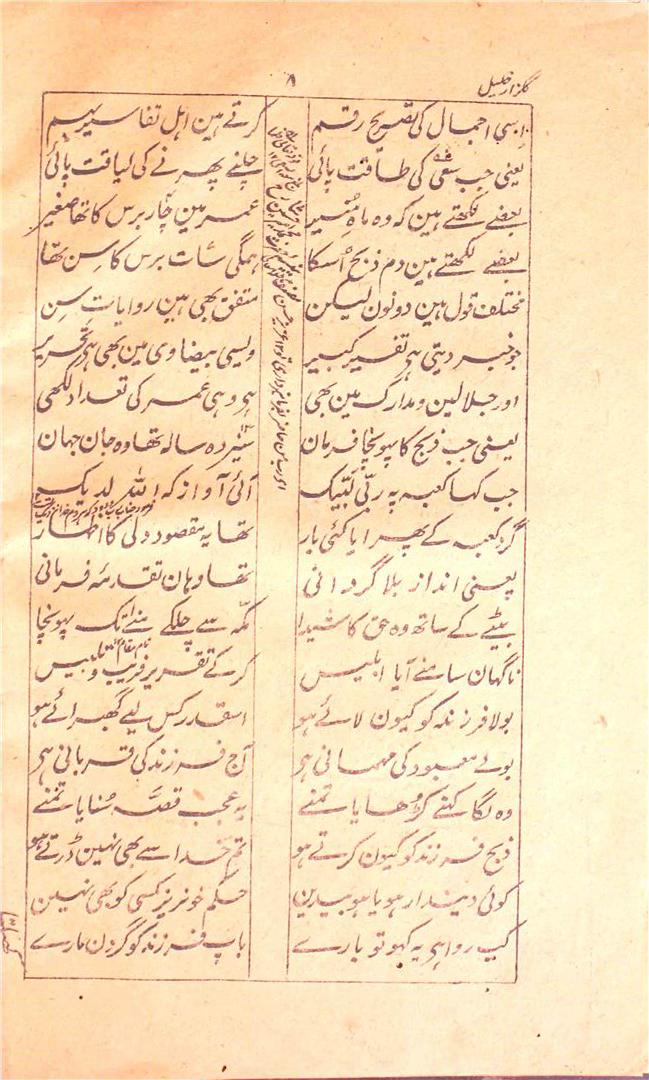 گلزار خلیل
۸
اسی اجمال کی تصریح رقم
کرتے ہین اہل تفاسیر بہم
یعنی جب سعی کی طاقت پائی
چلنے پھرنے کی لیاقت پائی
بعضے لکھتے ہین کہ وہ ماہ منیر
عمر مین چار برس کا تھا صغیر
بعضے لکھتے ہین دم ذبح اسکا
ہمگی سات برس کا سن تھا
مختلف قول ہین دونون لیکن
متفق بھی ہین روایات سن
جو خبر دیتی ہی تفسیر کبیر
ویسی بیضاوی مین بھی ہی تحریر
اور جلالین و مدارک مین بھی
ہی وہی عمر کی تعداد لکھی
یعنی جب ذبح کا پہونچا فرمان
سیزدہ سالہ تھا وہ جان جہان
جب کہا کعبہ پہ ربی لبیک
آئی آواز کہ اللہ لدیک
گرد کعبہ کے پھرایا کئی بار
تھا یہ مقصود دلی کا اظہار
یعنی انداز بلا گردانی
تھا وہان تقدمہ قربانی
بیٹے کے ساتھ وہ حق کا شیدا
مکہ سے چلکے منے تک پہونچا
نام مقام
ناگہان سامنے آیا ابلیس
کر کے تقریر فریب و تلبیس
بولا فرزند کو کیون لائے ہو
اسقدر کس لیے گھبرائے ہو
بولے معبود کی مہمانی ہی
آج فرزند کی قربانی ہی
وہ لگا کہنے کڑھایا تمنے
یہ عجب قصہ سنایا تمنے
ذبح فرزند کو کیون کرتے ہو
تم خدا سے بھی نہین ڈرتے ہو
کوئی دیندار ہو یا ہو بیدین
حکم خونریز کسی کو بھی نہین
کب روا ہی یہ کہو تو بارے
باپ فرزند کو گردن مارے